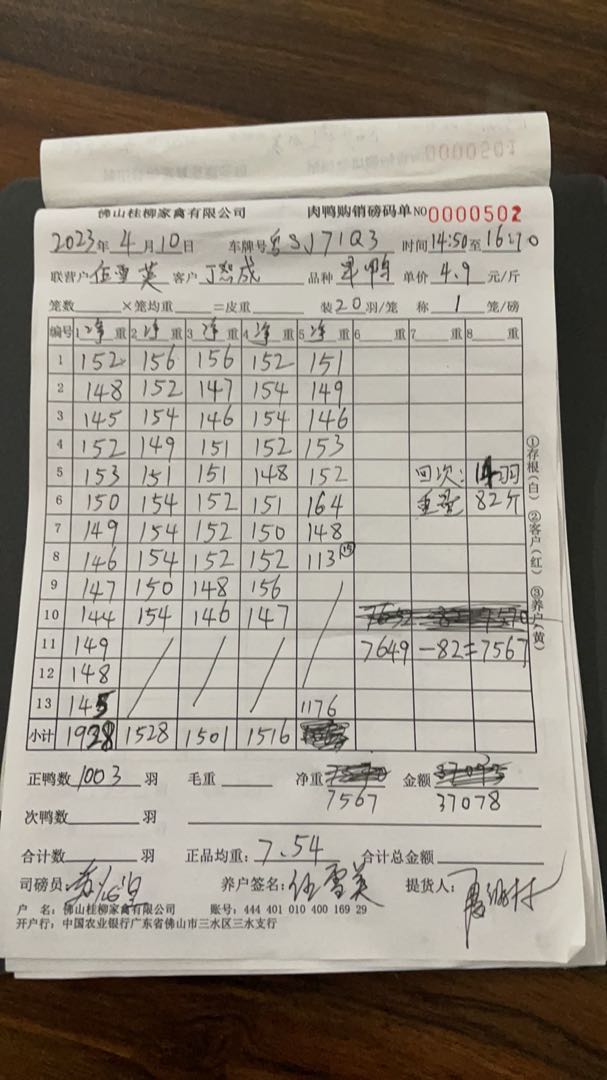 佛山桂柳家禽有限公司 肉鸭购销磅码单 NO 0000502
2023年 4月10日 车牌号 粤SJ71Q3 时间14:50至16:20
联营户 伍雪英 客户 丁 成 品种 鸭 单价 4.9 元/斤
笼数 ×笼均重 =皮重 装20羽/笼 称 1 笼/磅
编号 1 净 重 2 净 重 3 净 重 4 净 重 5 净 重 6 重 7 重 8 重
1 152 156 156 152 151
2 148 152 147 154 149
3 145 154 146 154 146
4 152 149 151 152 153
5 153 151 151 148 152 回次: 14羽
6 150 154 152 151 164 重量 82斤
7 149 154 152 150 148
8 146 154 152 152 113 (15)
9 147 150 148 156
10 144 154 146 147
11 149 7649-82=7567
12 148
13 145 1176
小计 1928 1528 1501 1516
正鸭数 1003 羽 毛重 净重 7567 金额 37078
次鸭数 羽
合计数 羽 正品均重: 7.54 合计总金额
司磅员: 养户签名: 伍雪英 提货人:
户 名: 佛山桂柳家禽有限公司 账号: 444 401 010 400 169 29
开户行: 中国农业银行广东省佛山市三水区三水支行
①存根(白) ②客户(红) ③养户(黄)